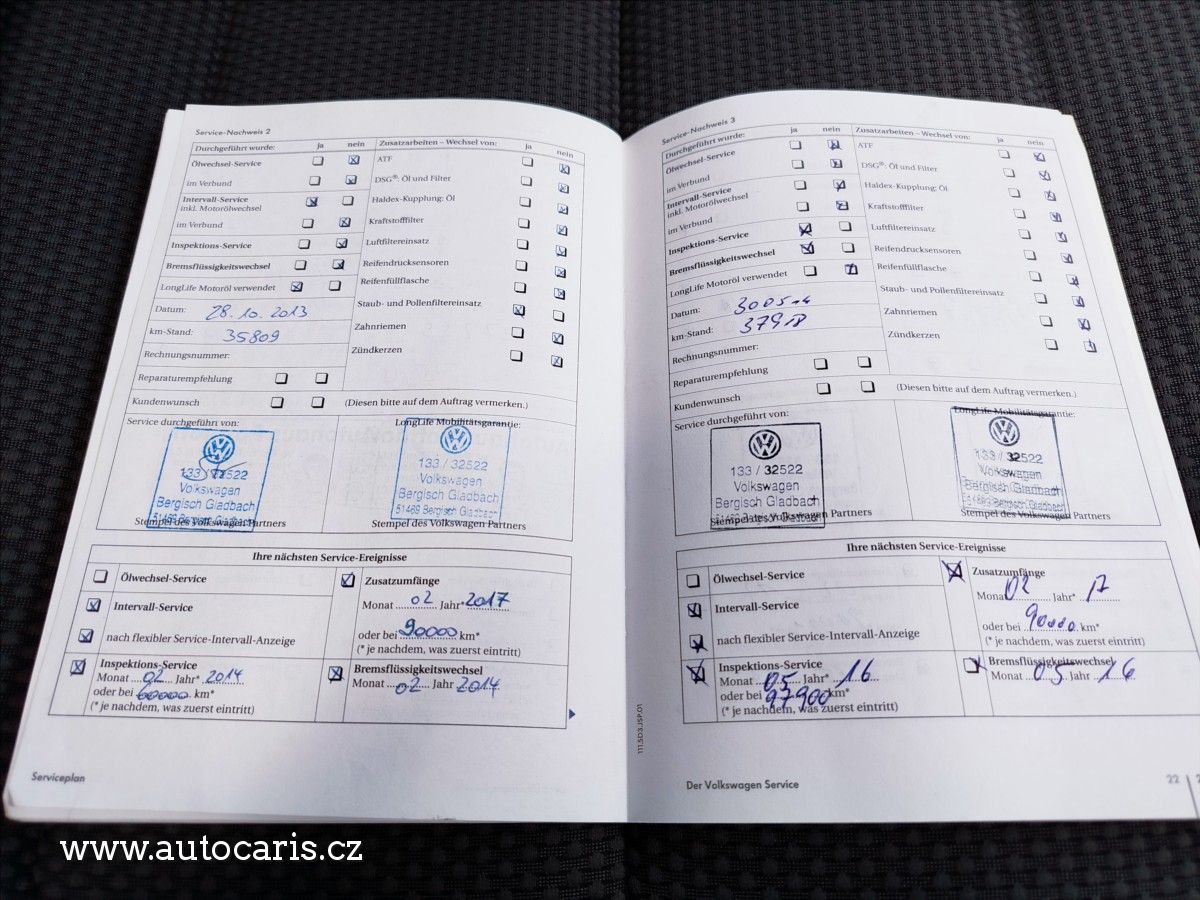 Service-Nachweis 2
Durchgeführt wurde: ja nein
Zusatzarbeiten – Wechsel von: ja nein
Ölwechsel-Service
ATF
im Verbund
DSG®: Öl und Filter
Intervall-Service
inkl. Motorölwechsel
Haldex-Kupplung: Öl
im Verbund
Kraftstofffilter
Inspektions-Service
Luftfiltereinsatz
Bremsflüssigkeitswechsel
Reifendrucksensoren
LongLife Motoröl verwendet
Reifenfüllflasche
Datum: 28.10.2013
Staub- und Pollenfiltereinsatz
km-Stand: 35809
Zahnriemen
Rechnungsnummer:
Zündkerzen
Reparaturempfehlung
Kundenwunsch
(Diesen bitte auf dem Auftrag vermerken.)
Service durchgeführt von:
LongLife Mobilitätsgarantie:
133 / 32522
Volkswagen
Bergisch Gladbach
51469 Bergisch Gladbach
Stempel des Volkswagen Partners
133 / 32522
Volkswagen
Bergisch Gladbach
51469 Bergisch Gladbach
Stempel des Volkswagen Partners
Ihre nächsten Service-Ereignisse
Ölwechsel-Service
Zusatzumfänge
Monat 02 Jahr* 2017
Intervall-Service
oder bei 90000 km*
nach flexibler Service-Intervall-Anzeige
(* je nachdem, was zuerst eintritt)
Inspektions-Service
Monat 02 Jahr* 2014
oder bei 60000 km*
(* je nachdem, was zuerst eintritt)
Bremsflüssigkeitswechsel
Monat 02 Jahr 2014
Serviceplan
Service-Nachweis 3
Durchgeführt wurde: ja nein
Zusatzarbeiten – Wechsel von: ja nein
Ölwechsel-Service
ATF
im Verbund
DSG®: Öl und Filter
Intervall-Service
inkl. Motorölwechsel
Haldex-Kupplung: Öl
im Verbund
Kraftstofffilter
Inspektions-Service
Luftfiltereinsatz
Bremsflüssigkeitswechsel
Reifendrucksensoren
LongLife Motoröl verwendet
Reifenfüllflasche
Datum:
Staub- und Pollenfiltereinsatz
km-Stand:
Zahnriemen
Rechnungsnummer:
Zündkerzen
Reparaturempfehlung
Kundenwunsch
(Diesen bitte auf dem Auftrag vermerken.)
Service durchgeführt von:
LongLife Mobilitätsgarantie:
133 / 32522
Volkswagen
Bergisch Gladbach
51469 Bergisch Gladbach
Stempel des Volkswagen Partners
133 / 32522
Volkswagen
Bergisch Gladbach
51469 Bergisch Gladbach
Stempel des Volkswagen Partners
Ihre nächsten Service-Ereignisse
Ölwechsel-Service
Zusatzumfänge
Monat 02 Jahr* 17
Intervall-Service
oder bei 90000 km*
nach flexibler Service-Intervall-Anzeige
(* je nachdem, was zuerst eintritt)
Inspektions-Service
Monat 05 Jahr* 16
oder bei 97900 km*
(* je nachdem, was zuerst eintritt)
Bremsflüssigkeitswechsel
Monat 05 Jahr 16
111.5D3.JSP.01
Der Volkswagen Service
22
www.autocaris.cz